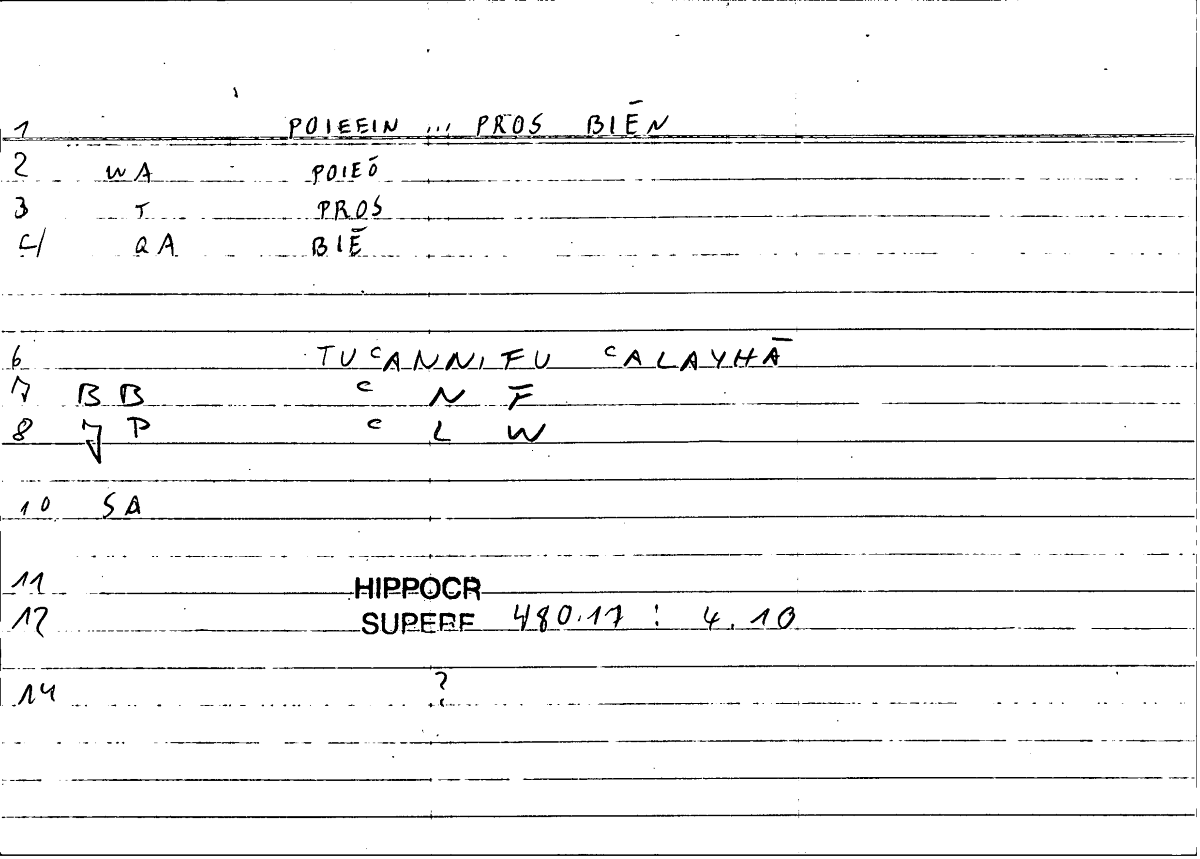 1 POIEEIN ... PROS BIĒN
2 WA POIEŌ
3 T PROS
4 QA BIĒ
6 TU ᶜANNIFU ᶜALAYHĀ
7 BB ᶜ N F̄
8 JP ᶜ L W
10 SA
11 HIPPOCR
12 SUPERF 480.17 : 4.10
14 ?